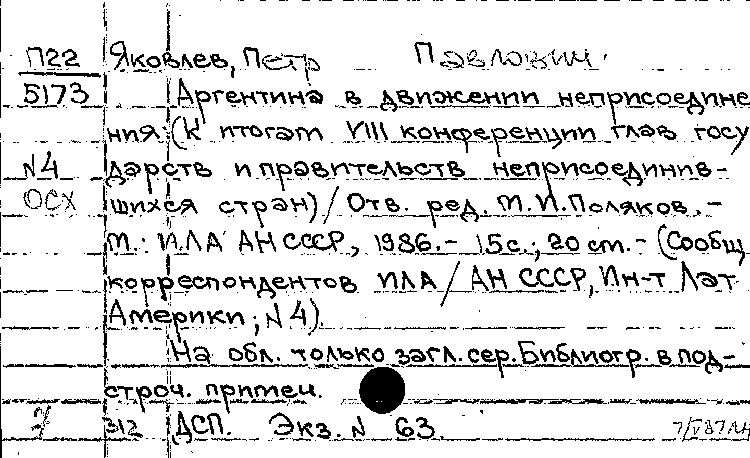 П22 Яковлев, Петр Павлович.
5173 Аргентина в движении неприсоедине
ния: (К итогам VIII конференции глав госу
N4 дарств и правительств неприсоединив-
ОСХ шихся стран) / Отв. ред. М.И.Поляков. -
М.: ИЛА АН СССР, 1986. - 15с.; 20 см. - (Сообщ,
корреспондентов ИЛА / АН СССР, Ин-т Лат
Америки; N 4).
На обл. только загл. сер. Библиогр. в под-
строч. примеч.
7 312 ДСП. Экз. N 63.